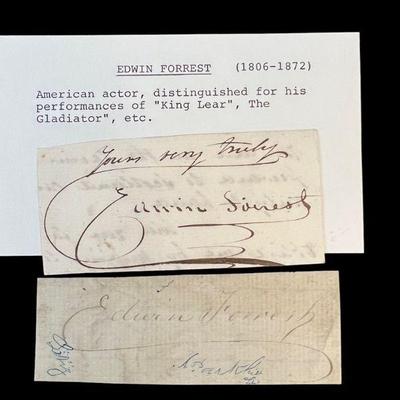 EDWIN FORREST (1806-1872)
American actor, distinguished for his
performances of "King Lear", The
Gladiator", etc.
Yours very truly
Edwin Forrest
Edwin Forrest